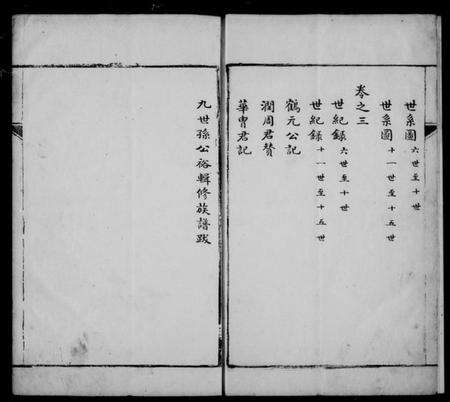 世系圖 六世至十世
世系圖 十一世至十五世
卷之三
世紀録 六世至十世
世紀録 十一世至十五世
鶴元公記
潤周君贊
華胄君記
九世孫公裕輯修族譜跋